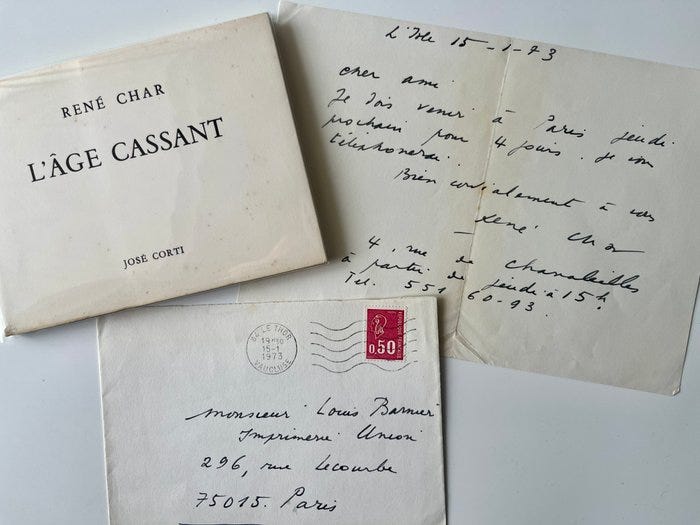 RENÉ CHAR
L'ÂGE CASSANT
JOSÉ CORTI
L'Isle 15-1-73
cher ami.
Je dois venir à Paris jeudi
prochain pour 4 jours. Je vous
téléphonerai.
Bien cordialement à vous
René Char
4, rue de Chanaleilles
à partir de jeudi à 15h.
Tél. 551 60-93.
84 LE THOR
15-1
1973
VAUCLUSE
0,50
REPUBLIQUE FRANÇAISE
monsieur Louis Barnier
Imprimerie Union
296, rue Lecourbe
75015. Paris